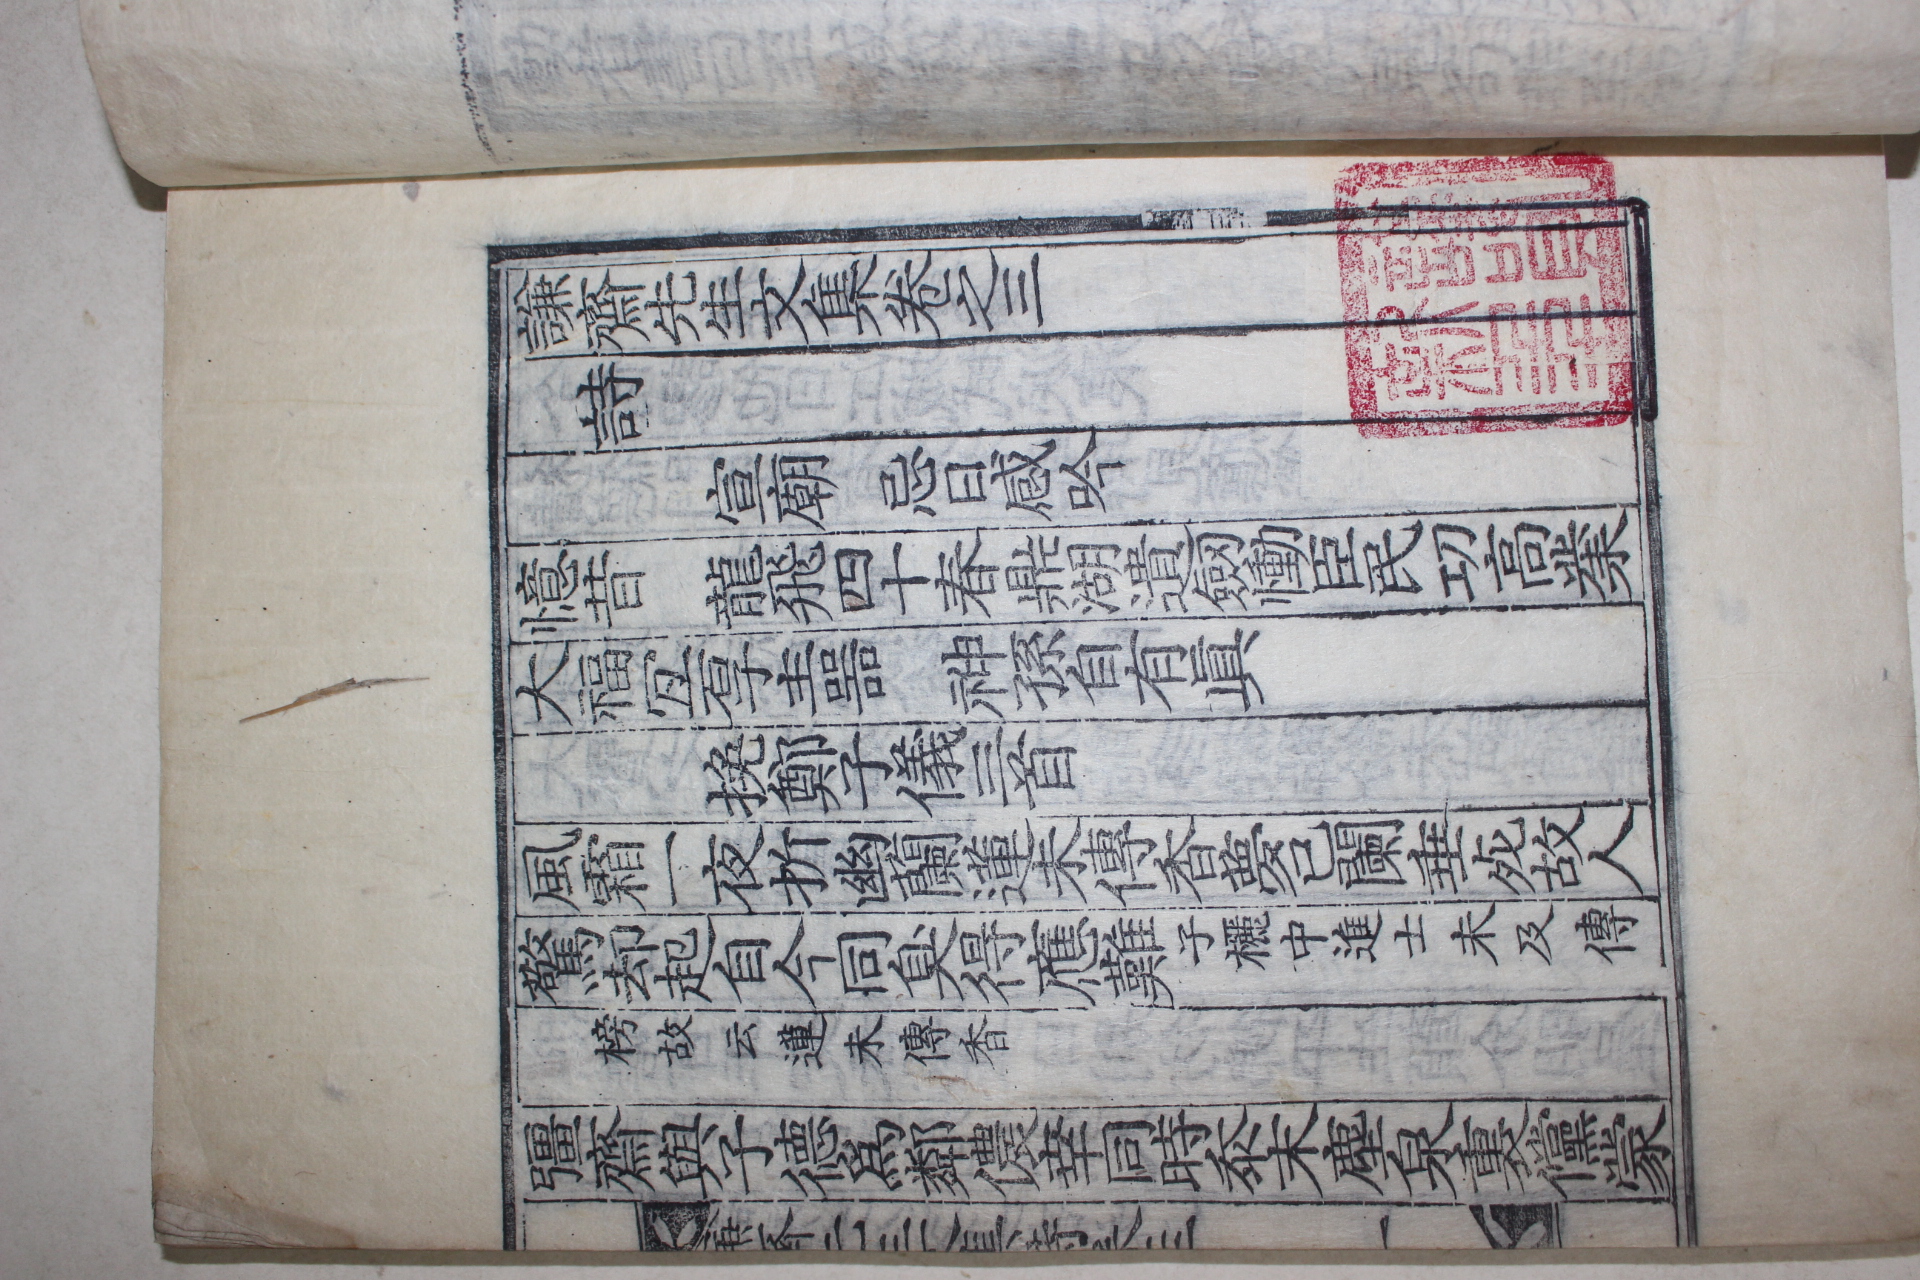 謙齋先生文集卷之三
詩
宣廟 忌日感吟
憶昔 龍飛四十春鼎湖遺劒慟臣民功高業
大福冝石享主器 神孫自有眞
挽鄭子儀三首
風霜一夜折幽蘭蓮未傳香夢已闌垂死故人
驚却起自今同臭得應難子櫳中進士未及傳
榜故云蓮未傳香
彊齋與子德爲鄰儂幸同時忝末塵泉裏儻蒙
謙齋先生文集詩卷三
一